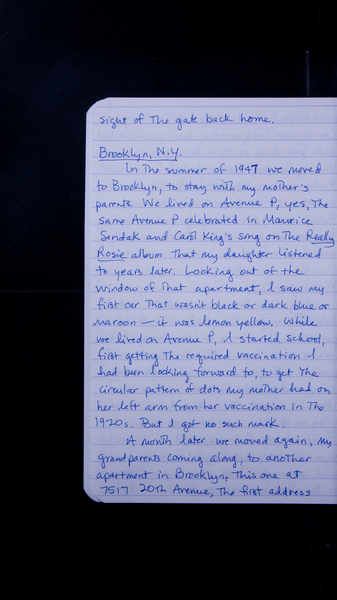 sight of The gate back home.
Brooklyn, N.Y.
In the summer of 1947 we moved
to Brooklyn, to stay with my mother's
parents. We lived on Avenue P, yes, The
same Avenue P celebrated in Maurice
Sendak and Carol King's song on The Really
Rosie album That my daughter listened
to years later. Looking out of the
window of That apartment, I saw my
first car That wasn't black or dark blue or
maroon — it was lemon yellow. While
we lived on Avenue P, I started school,
first getting The required vaccination I
had been looking forward to, to get The
circular pattern of dots my mother had on
her left arm from her vaccination in The
1920s. But I got no such mark.
A month later we moved again, my
grandparents coming along, to another
apartment in Brooklyn, This one at
7517 20th Avenue, The first address